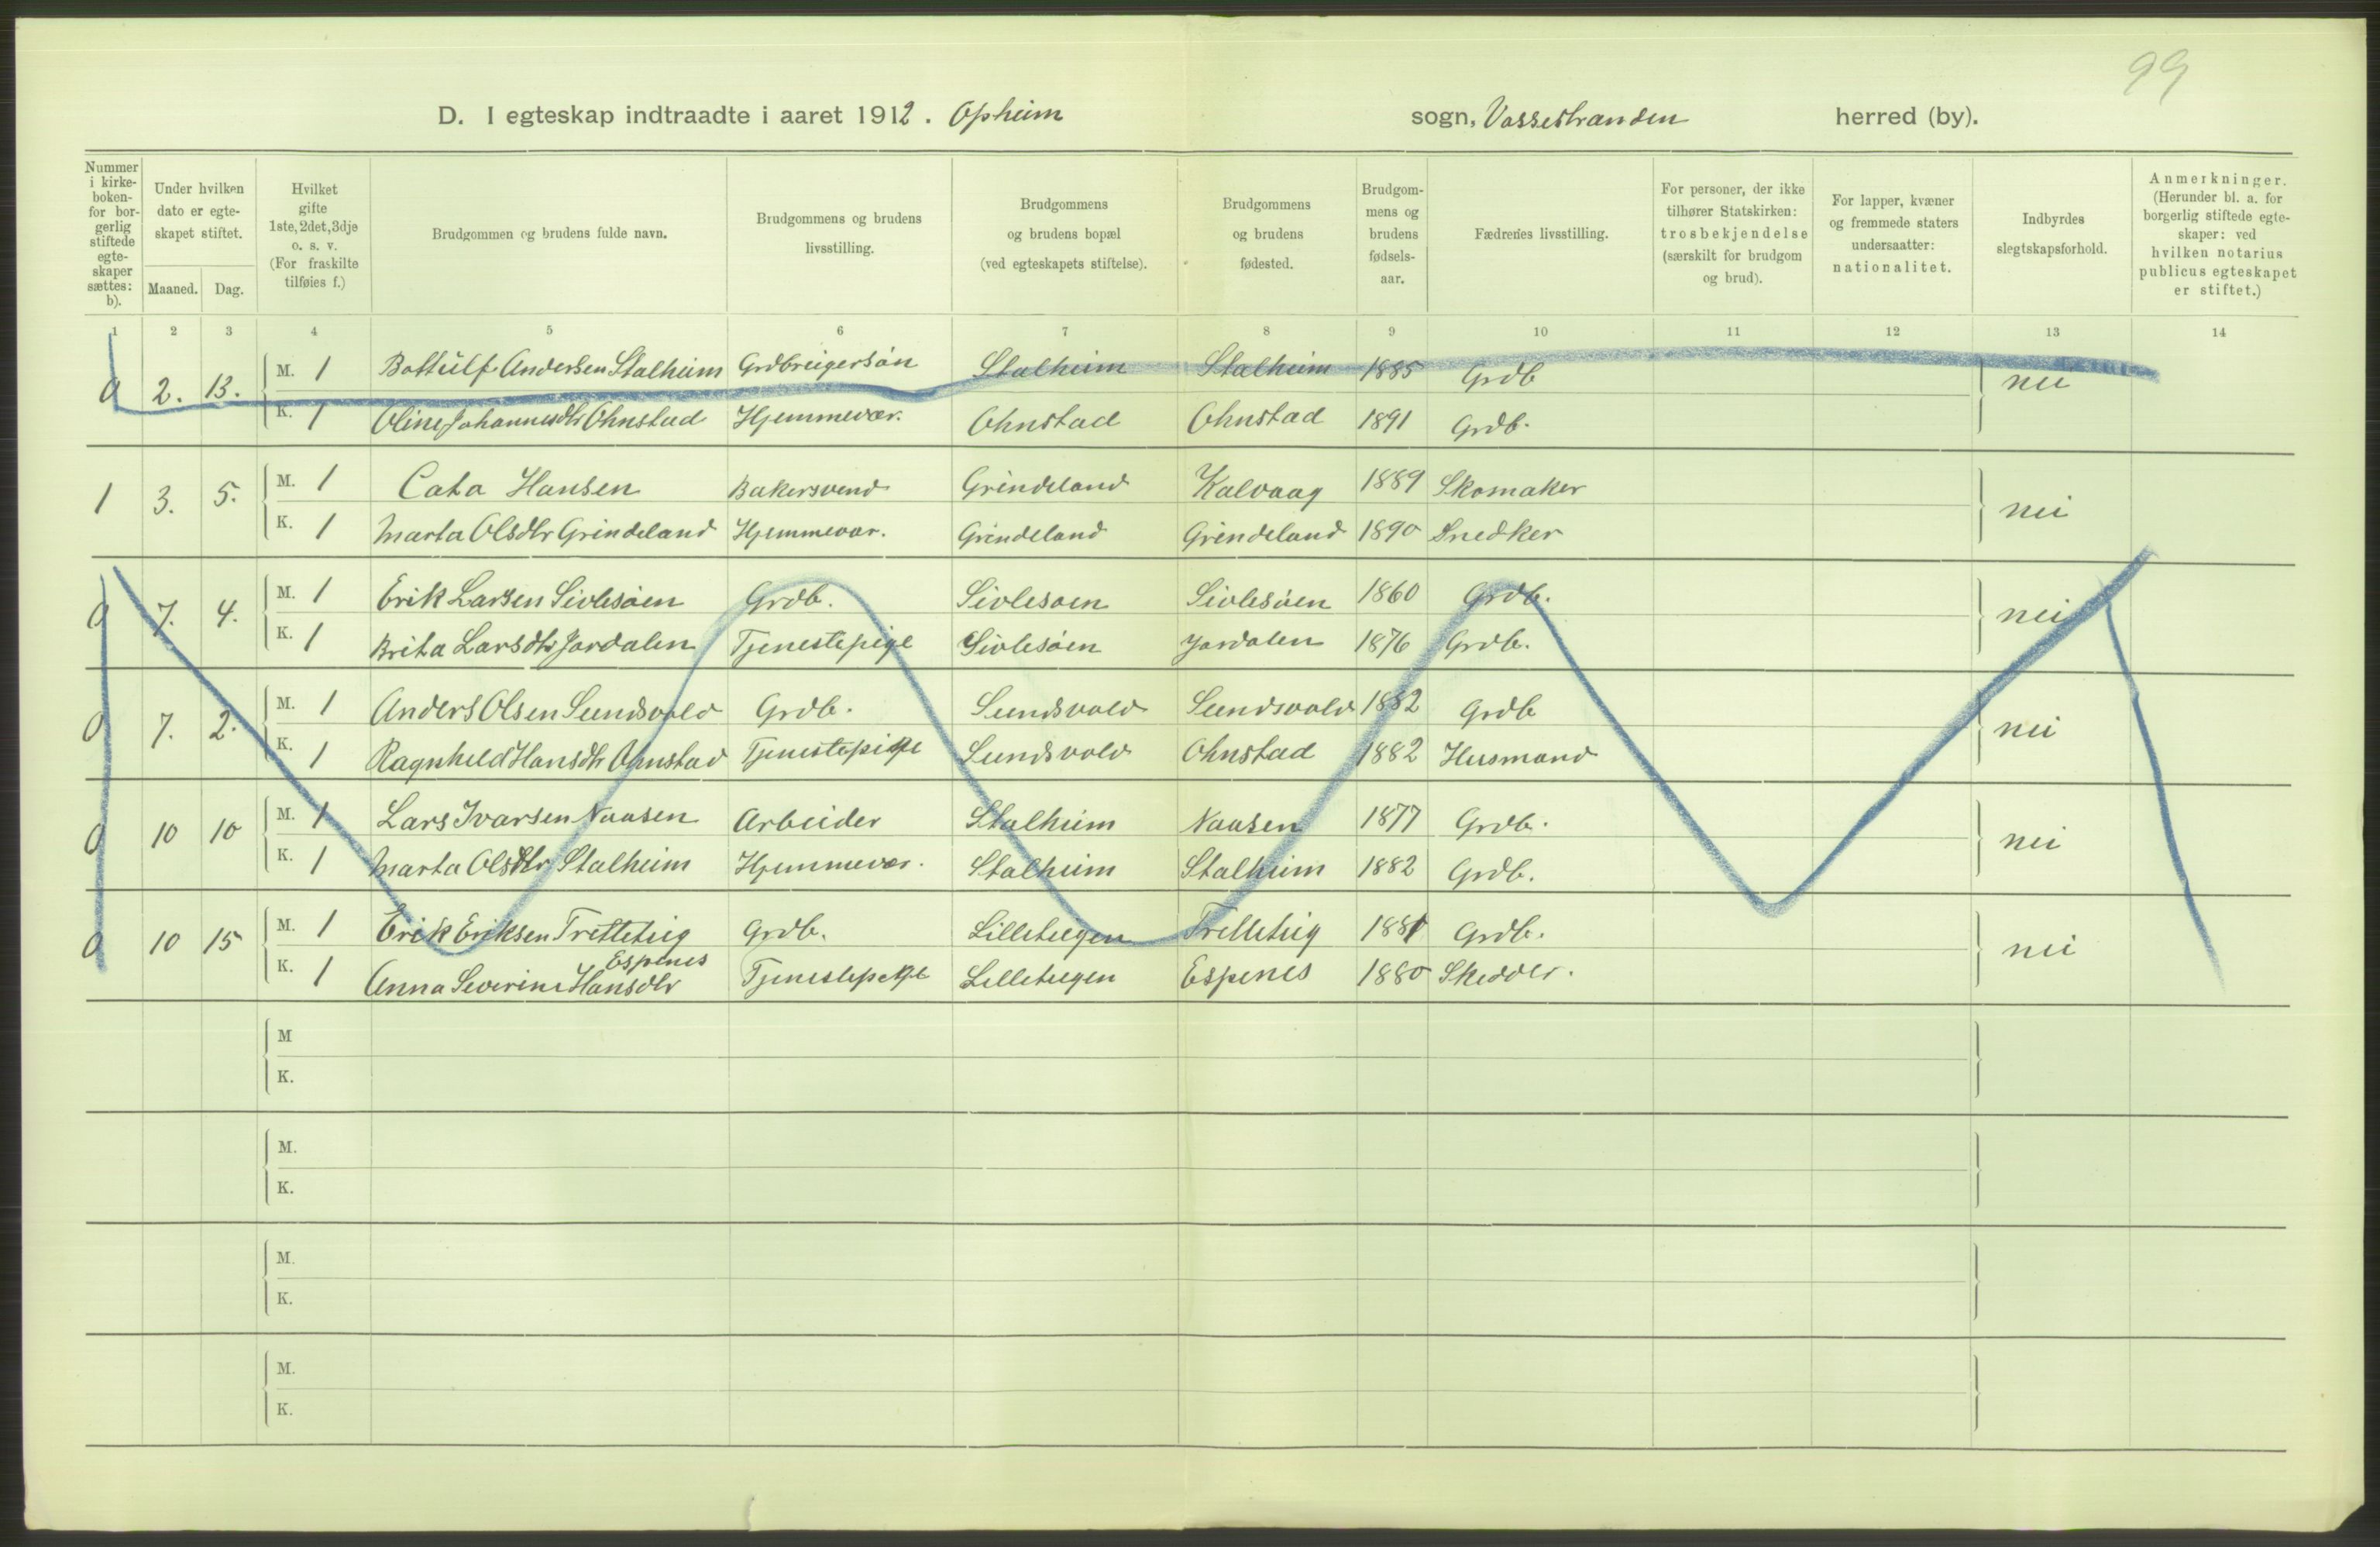 99
D. I egteskap indtraadte i aaret 1912. Opheim sogn, Vossestranden herred (by).
Nummer i kirke-boken- for bor-gerlig stiftede egte-skaper sættes: b).
Under hvilken dato er egte-skapet stiftet.
Maaned. Dag.
Hvilket gifte 1ste, 2det, 3dje o. s. v. (For fraskilte tilføies f.)
Brudgommen og brudens fulde navn.
Brudgommens og brudens livsstilling.
Brudgommens og brudens bopæl (ved egteskapets stiftelse).
Brudgommens og brudens fødested.
Brudgom-mens og brudens fødsels-aar.
Fædrenes livsstilling.
For personer, der ikke tilhører Statskirken: trosbekjendelse (særskilt for brudgom og brud).
For lapper, kvæner og fremmede staters undersaatter: nationalitet.
Indbyrdes slegtskapsforhold.
Anmerkninger. (Herunder bl. a. for borgerlig stiftede egte-skaper: ved hvilken notarius publicus egteskapet er stiftet.)
1 2 3 4 5 6 7 8 9 10 11 12 13 14
0 2. 13. M. 1 Bottulf Andersen Stalheim Grdbreigersøn Stalheim Stalheim 1885 Grdb nei
K. 1 Oline Johannesdtr Ohnstad Hjemmevær. Ohnstad Ohnstad 1891 Grdb.
1 3. 5. M. 1 Cato Hansen Bakersvend Grindeland Kalvaag 1889 Skomaker nei
K. 1 Marta Olsdtr Grindeland Hjemmevær. Grindeland Grindeland 1890 Snedker
0 7. 4. M. 1 Erik Larsen Sivlesøen Grdb. Sivlesøen Sivlesøen 1860 Grdb. nei
K. 1 Brita Larsdtr Jordalen Tjenestepige Sivlesøen Jordalen 1876 Grdb.
0 7. 2. M. 1 Anders Olsen Sundsvold Grdb. Sundsvold Sundsvold 1882 Grdb nei
K. 1 Ragnhild Hansdtr Ohnstad Tjenestepige Sundsvold Ohnstad 1882 Husmand
0 10 10 M. 1 Lars Ivarsen Naasen Arbeider Stalheim Naasen 1877 Grdb. nei
K. 1 Marta Olsdtr Stalheim Hjemmevær. Stalheim Stalheim 1882 Grdb.
0 10 15 M. 1 Erik Eriksen Tretteteig Grdb. Lilleteigen Tretteteig 1881 Grdb. nei
Espenes
K. 1 Anna Severine Hansdtr Tjenestepige Lilleteigen Espenes 1880 Skrædder.
M
K.
M.
K.
M.
K.
M.
K.